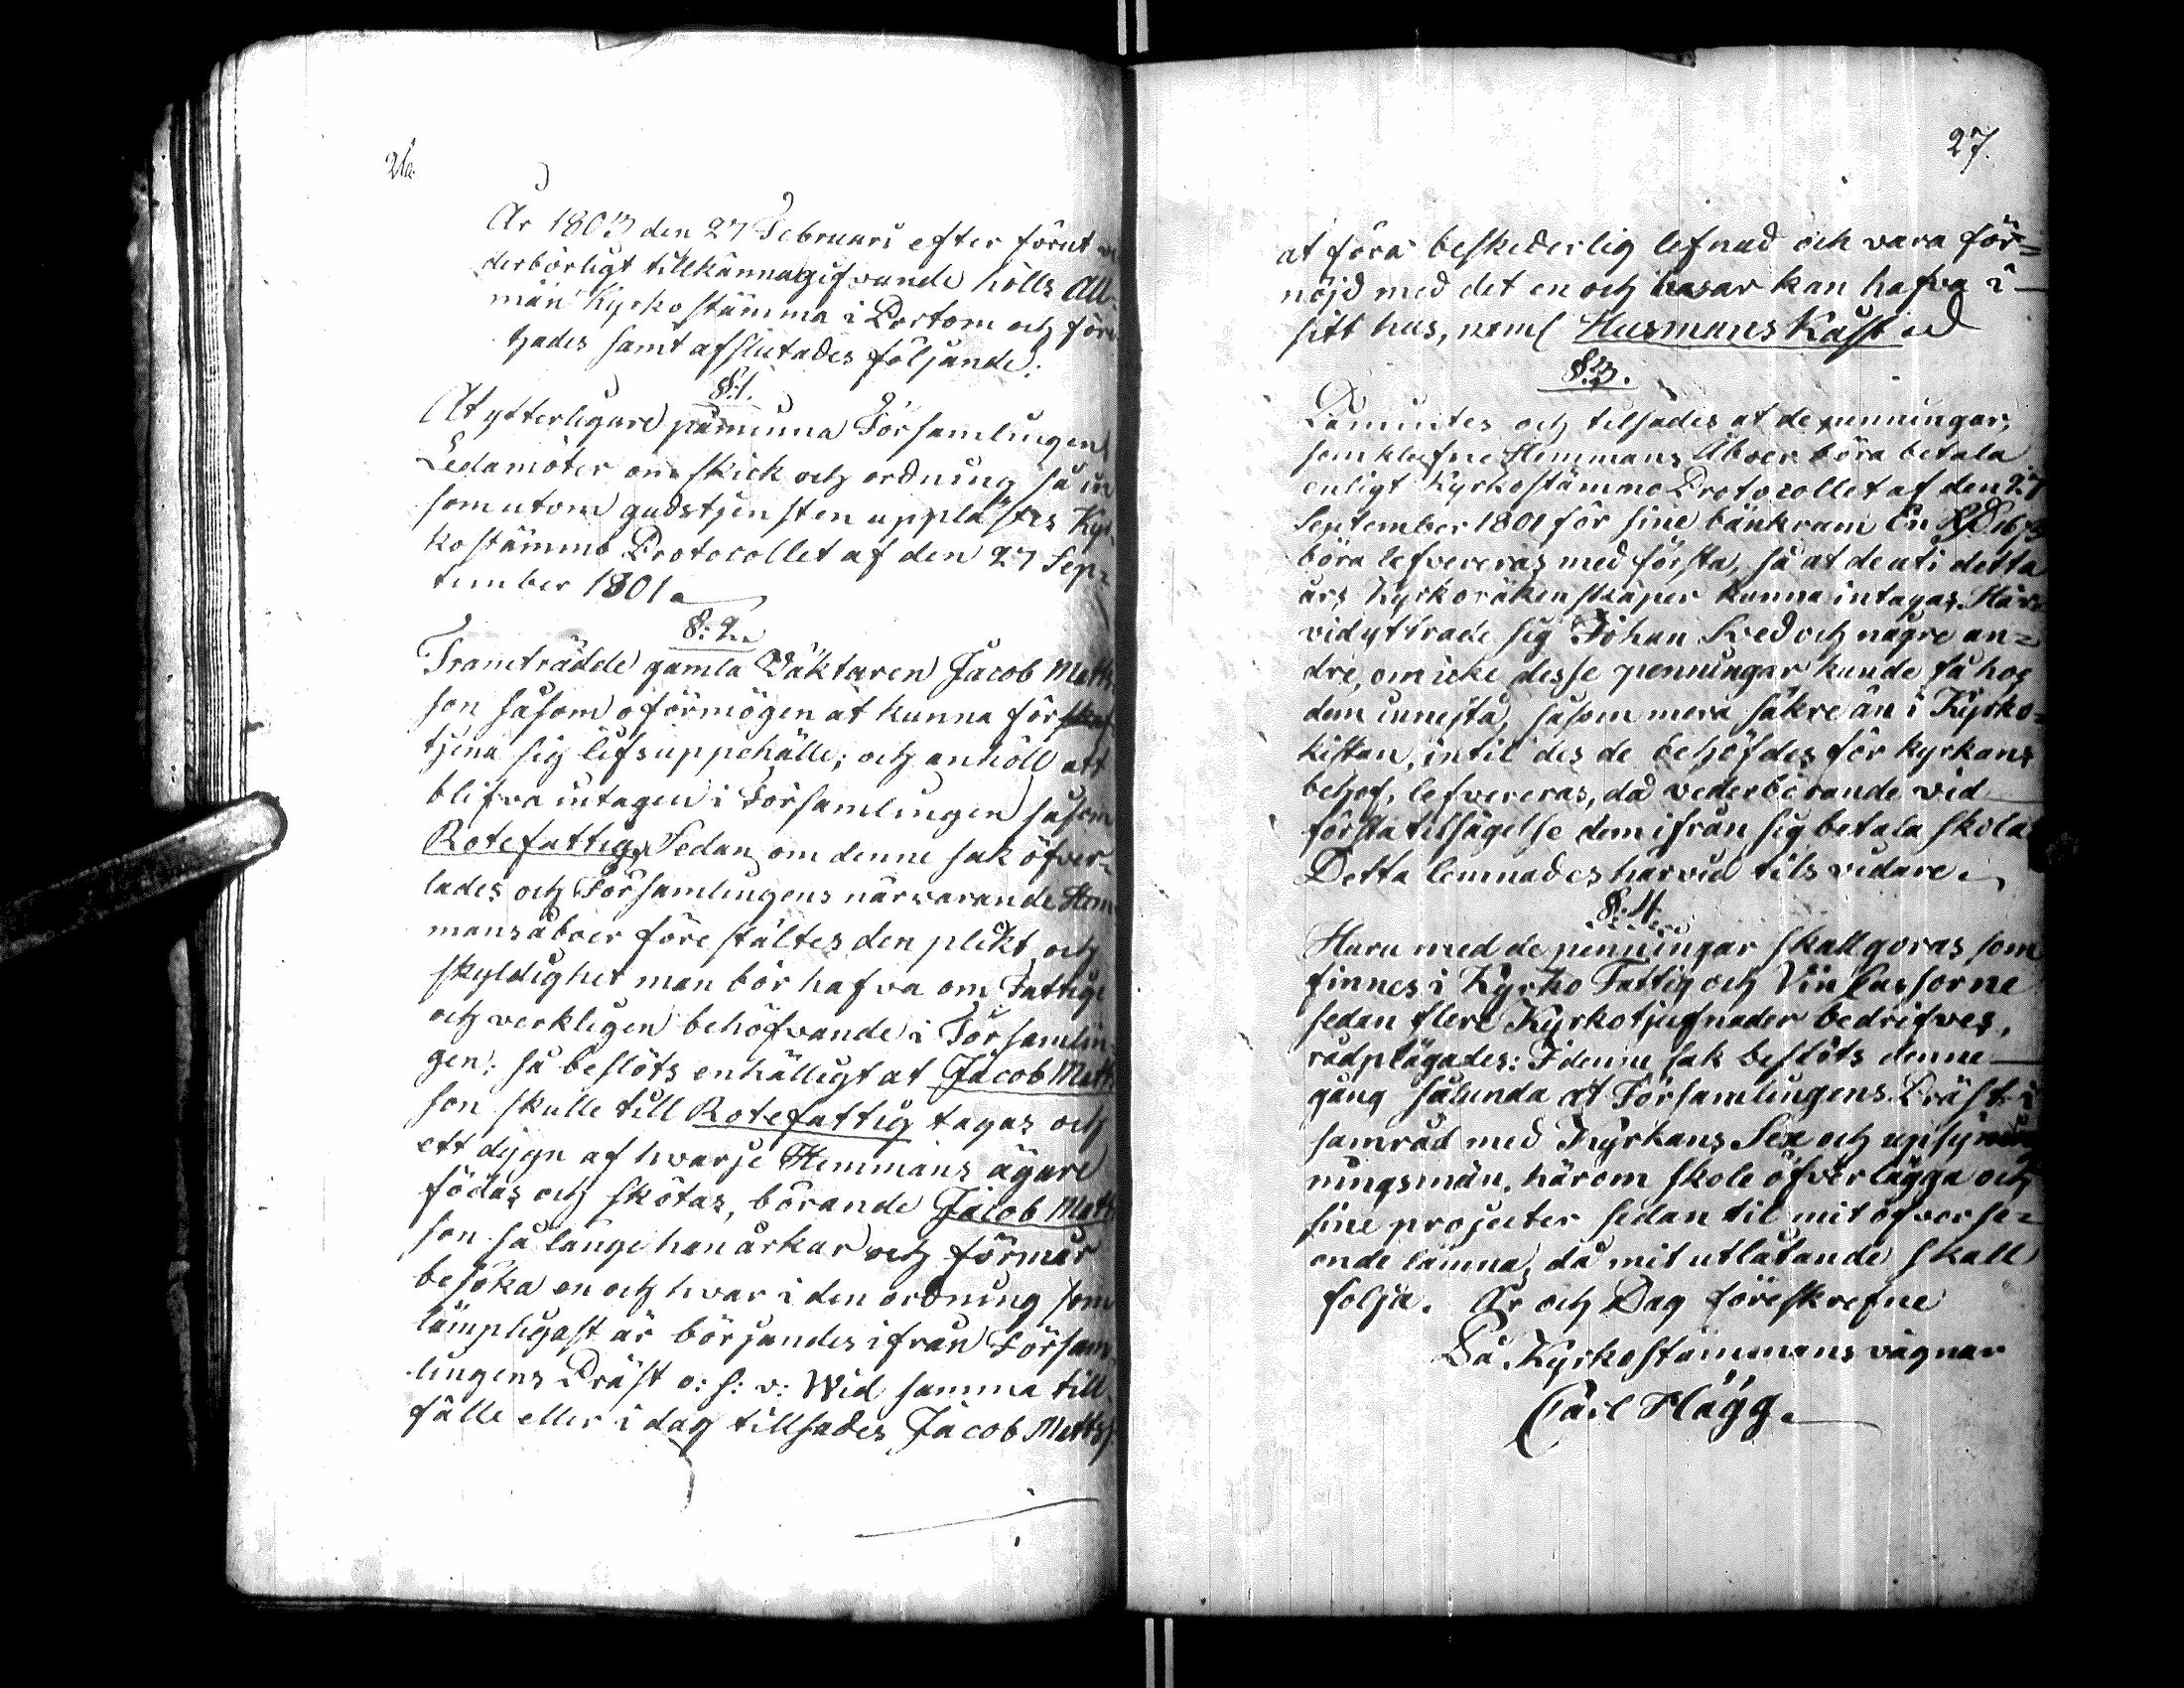 26.
År 1803 den 27 Februari efter förut ve
derbörligt tillkännagifvande hölls All-
män Kyrkostämma i Portom och före
tzades samt afslutades följande:
§.1.
At ytterligare påminna Församlingens
Ledamöter om skick och ordning så in
som utom gudstjensten upplästes Kyr
kostämmo Protocollet af den 27 Sep-
tember 1801.
§.2.
Framträdde gamla Väktaren Jacob Matts
son såsom oförmögen at kunna för
tjena sig lifsuppehälle; och anhöll att
blifva intagen i Församlingen såsom
Rotefattig. Sedan om denne sak öfver-
lades och Församlingens närvarande Hem
mansåboer förestältes den plikt och
skyldighet man bör hafva om Fattige
och verkligen behöfvande i Församlin
gen; så beslöts enhälligt at Jacob Matts
son skulle till Rotefattig tagas och
ett dygn af hwarje Hemmans ägare
födas och skötas, börande Jacob Matts
son så länge han orkar och förmår
besöka en och hvar i den ordning som
lämpligast är börjandes ifrån Försam
lingens Präst o: s: v: Wid samma till
fälle eller i dag tillsades Jacob Mattss.
27.
at föra beskederlig lefnad och vara för=
nöjd med det en och hvar kan hafva i
sitt hus, neml Husmans Kåst
§.3.
Påmintes och tilsades at de penningar,
som klufne Hemmans Åboer böra betala
enligt Kyrkostämmo Protocollet af den 27
September 1801 för sine bänkrum En
böra lefvereras med första, så at de uti detta
års Kyrkoräkenskaper kunna intagas. Här-
vid yttrade sig Johan Sved och någre an=
dre, om icke desse penningar kunde få hos
dem innestå, såsom mera säkre än i Kyrko=
kistan, intil des de behöfdes för kyrkans
behof, lefvereras, då vederbörande vid
första tilsägelse dem ifrån sig betala skola.
Detta lemnades härvid tils vidare.
§.4.
Huru med de penningar skall göras som
finnes i Kyrko Fattig och Vin Cassorne
sedan flere Kyrkotjufnader bedrifves,
rådplägades: I denne sak beslöts denne
gång sålunda at Församlingens Präst i
samråd med Kyrkans Sex och upsyn
ningsmän, härom skole öfverlägga och
sine projecter sedan til mit öfverse=
ende lämna, då mit utlåtande skall
följa. År och Dag föreskrefne
På Kyrkostämmans vägnar
Carl Hägg.